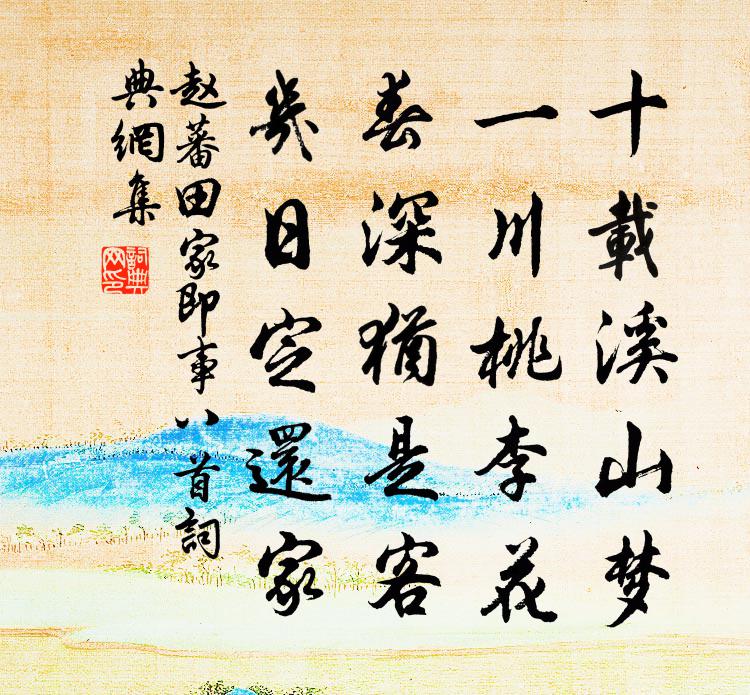 十載溪山梦
一川桃李花
春深猶是客
幾日定還家
赵蕃田家即事八首詞
典網集
詞典
网印